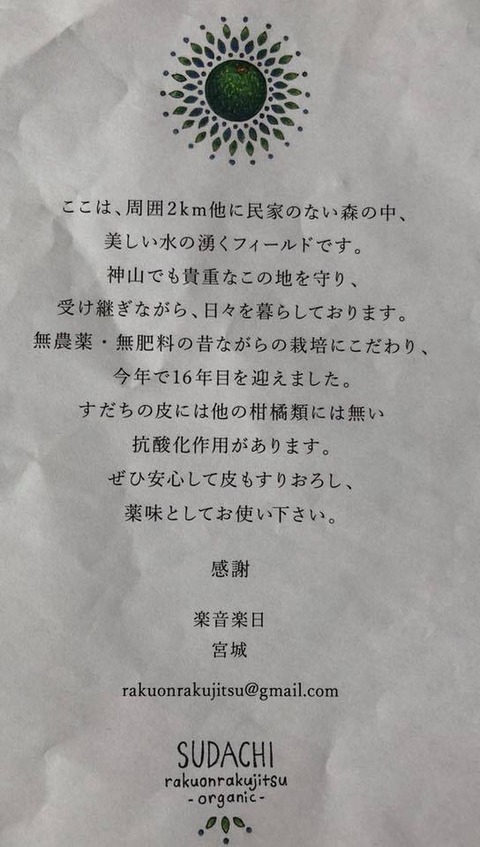 ここは、周囲2km他に民家のない森の中、
美しい水の湧くフィールドです。
神山でも貴重なこの地を守り、
受け継ぎながら、日々を暮らしております。
無農薬・無肥料の昔ながらの栽培にこだわり、
今年で16年目を迎えました。
すだちの皮には他の柑橘類には無い
抗酸化作用があります。
ぜひ安心して皮もすりおろし、
薬味としてお使い下さい。
感謝
楽音楽日
宮城
rakuonrakujitsu@gmail.com
SUDACHI
rakuonrakujitsu
-organic-